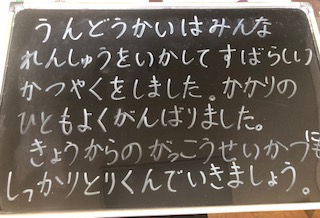 うんどうかいはみんな
れんしゅうをいかしてすばらしい
かつやくをしました。かかりの
ひともよくがんばりました。
きょうからのがっこうせいかつも
しっかりとりくんでいきましょう。